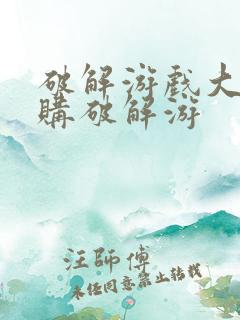 破解游戲大
購破解游
汪師傅
未经同意禁止转载